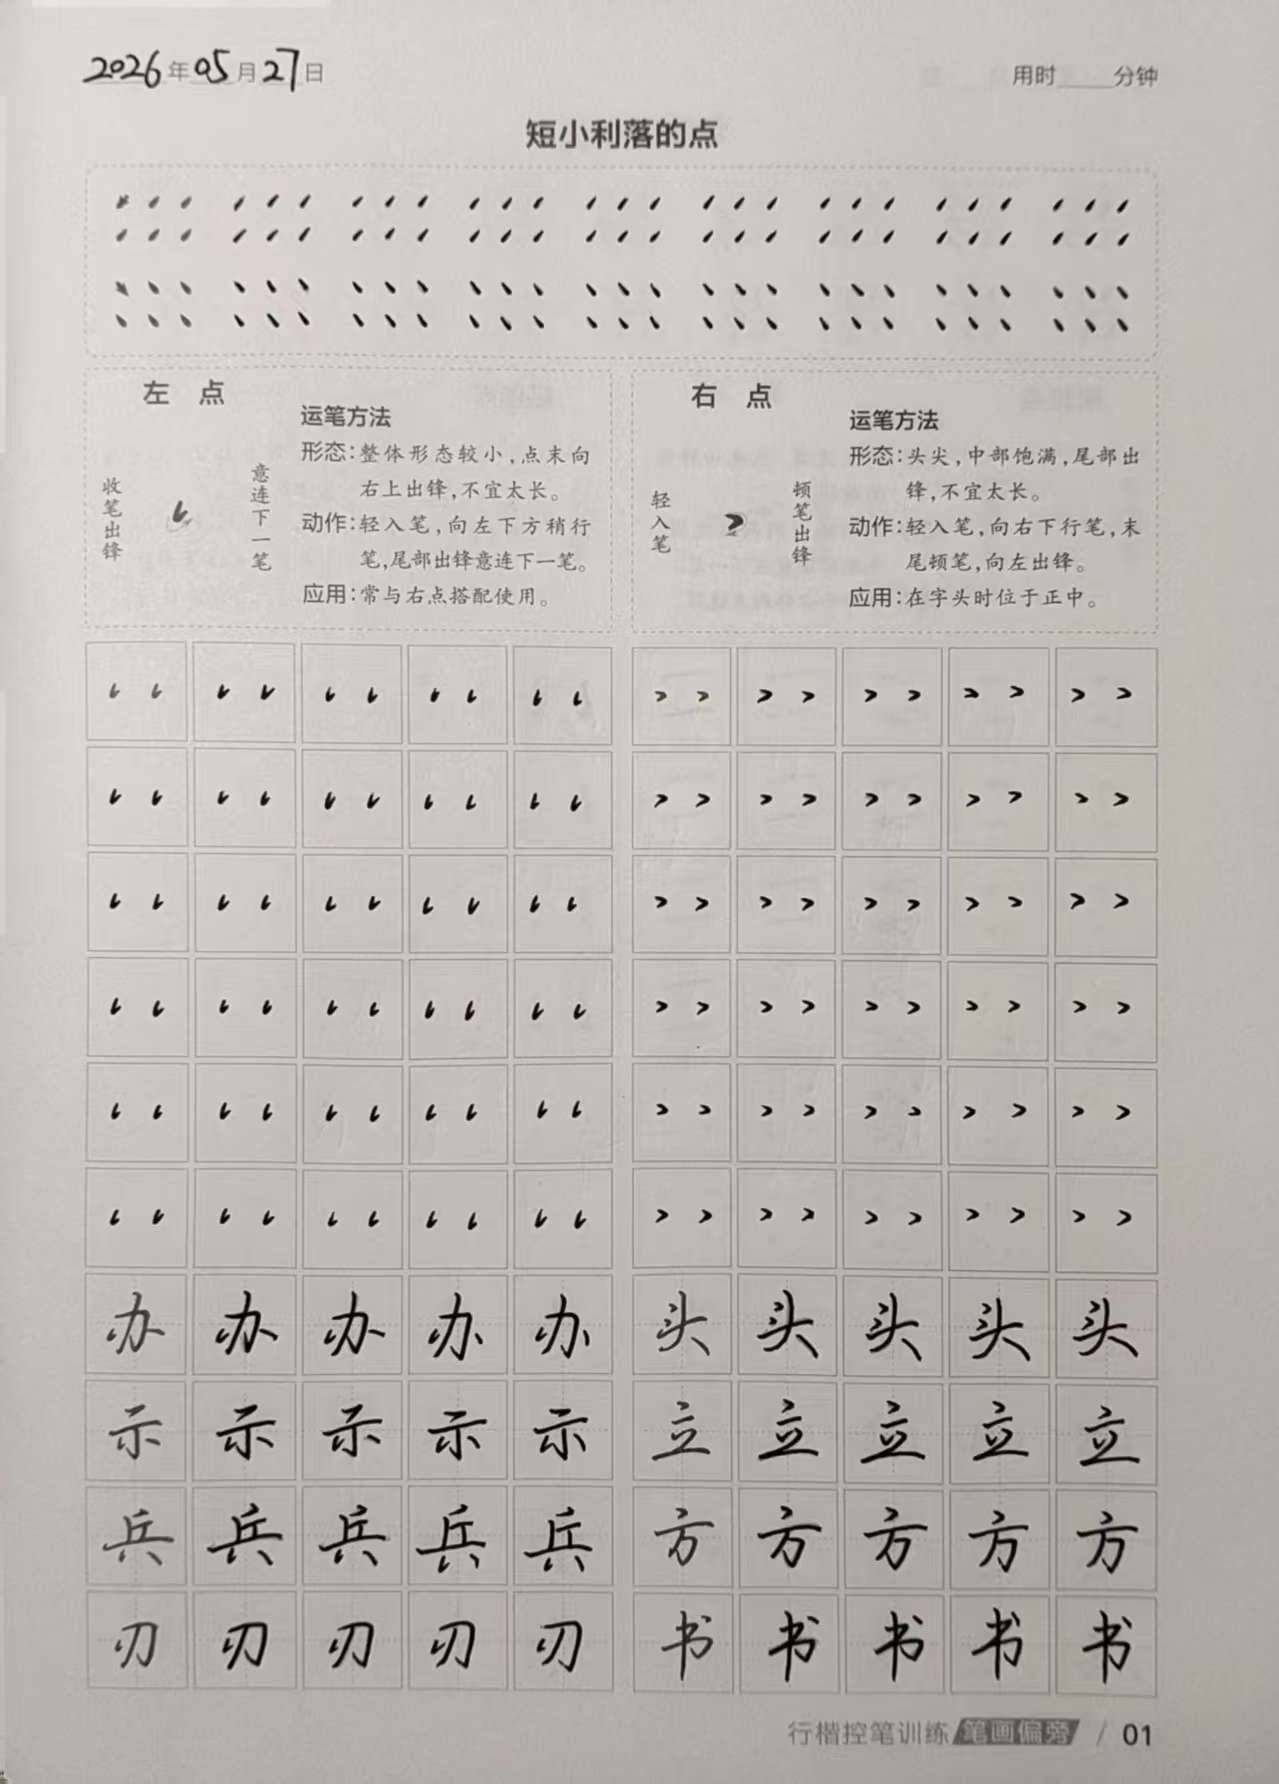 2026年05月27日 用时____分钟
短小利落的点
左 点
收笔出锋
意连下一笔
运笔方法
形态:整体形态较小,点末向
右上出锋,不宜太长。
动作:轻入笔,向左下方稍行
笔,尾部出锋意连下一笔。
应用:常与右点搭配使用。
右 点
轻入笔
顿笔出锋
运笔方法
形态:头尖,中部饱满,尾部出
锋,不宜太长。
动作:轻入笔,向右下行笔,末
尾顿笔,向左出锋。
应用:在字头时位于正中。
办 办 办 办 办 头 头 头 头 头
示 示 示 示 示 立 立 立 立 立
兵 兵 兵 兵 兵 方 方 方 方 方
刃 刃 刃 刃 刃 书 书 书 书 书
行楷控笔训练 笔画偏旁 / 01